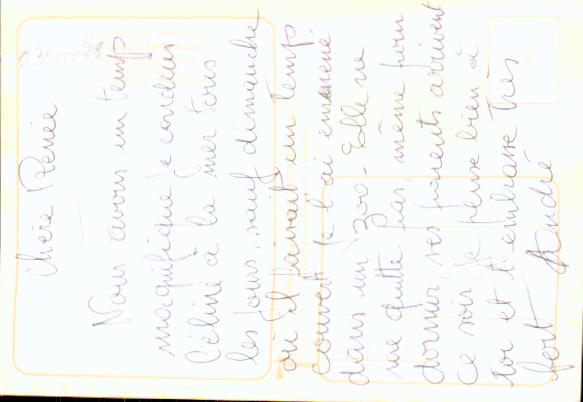 Chère Renée
Nous avons un temps
magnifique je conduis
Céline à la mer tous
les jours, sauf dimanche
où il faisait un temps
couvert je l'ai emmené
dans un zoo. Elle ne
me quitte pas, même pour
dormir, ses parents arrivent
ce soir je pense bien à
toi et t'embrasse très
fort André